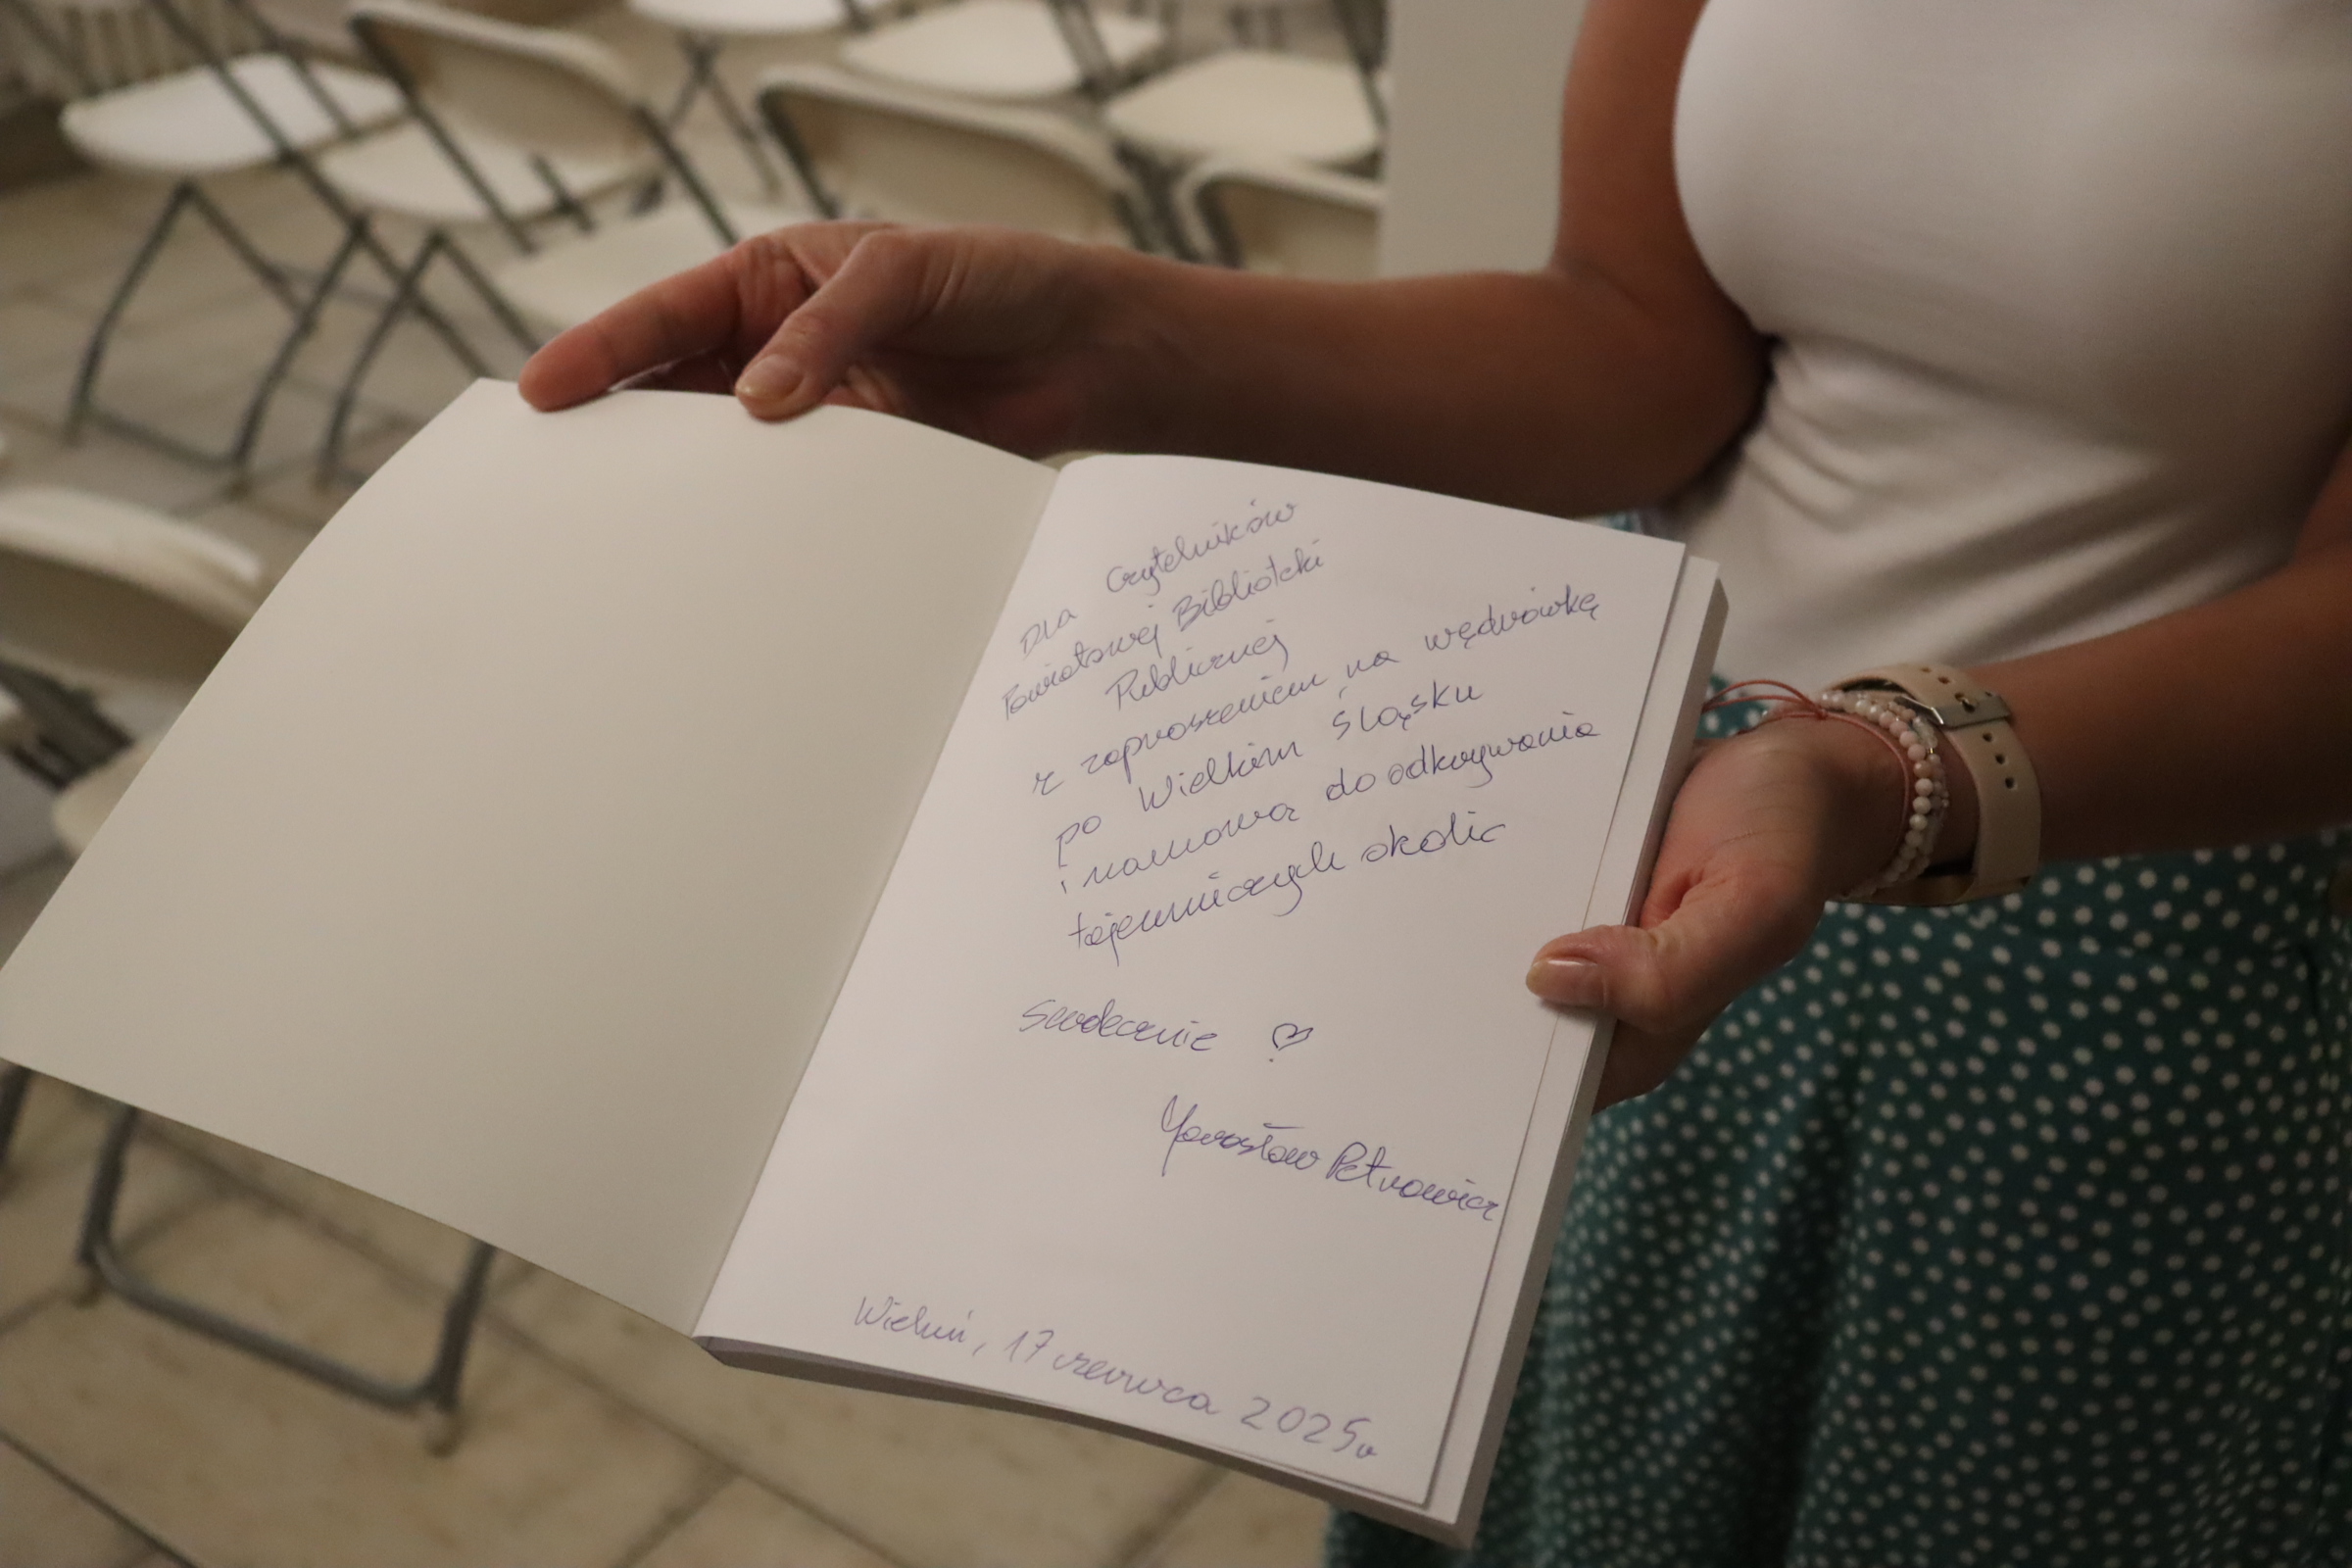 Dla Czytelników
Powiatowej Biblioteki
Publicznej
z zaproszeniem na wędrówkę
po Wielkim Śląsku
i namową do odkrywania
tajemniczych okolic
Serdecznie ♡
Yarosław Petrowicz
Wieluń, 17 czerwca 2025r